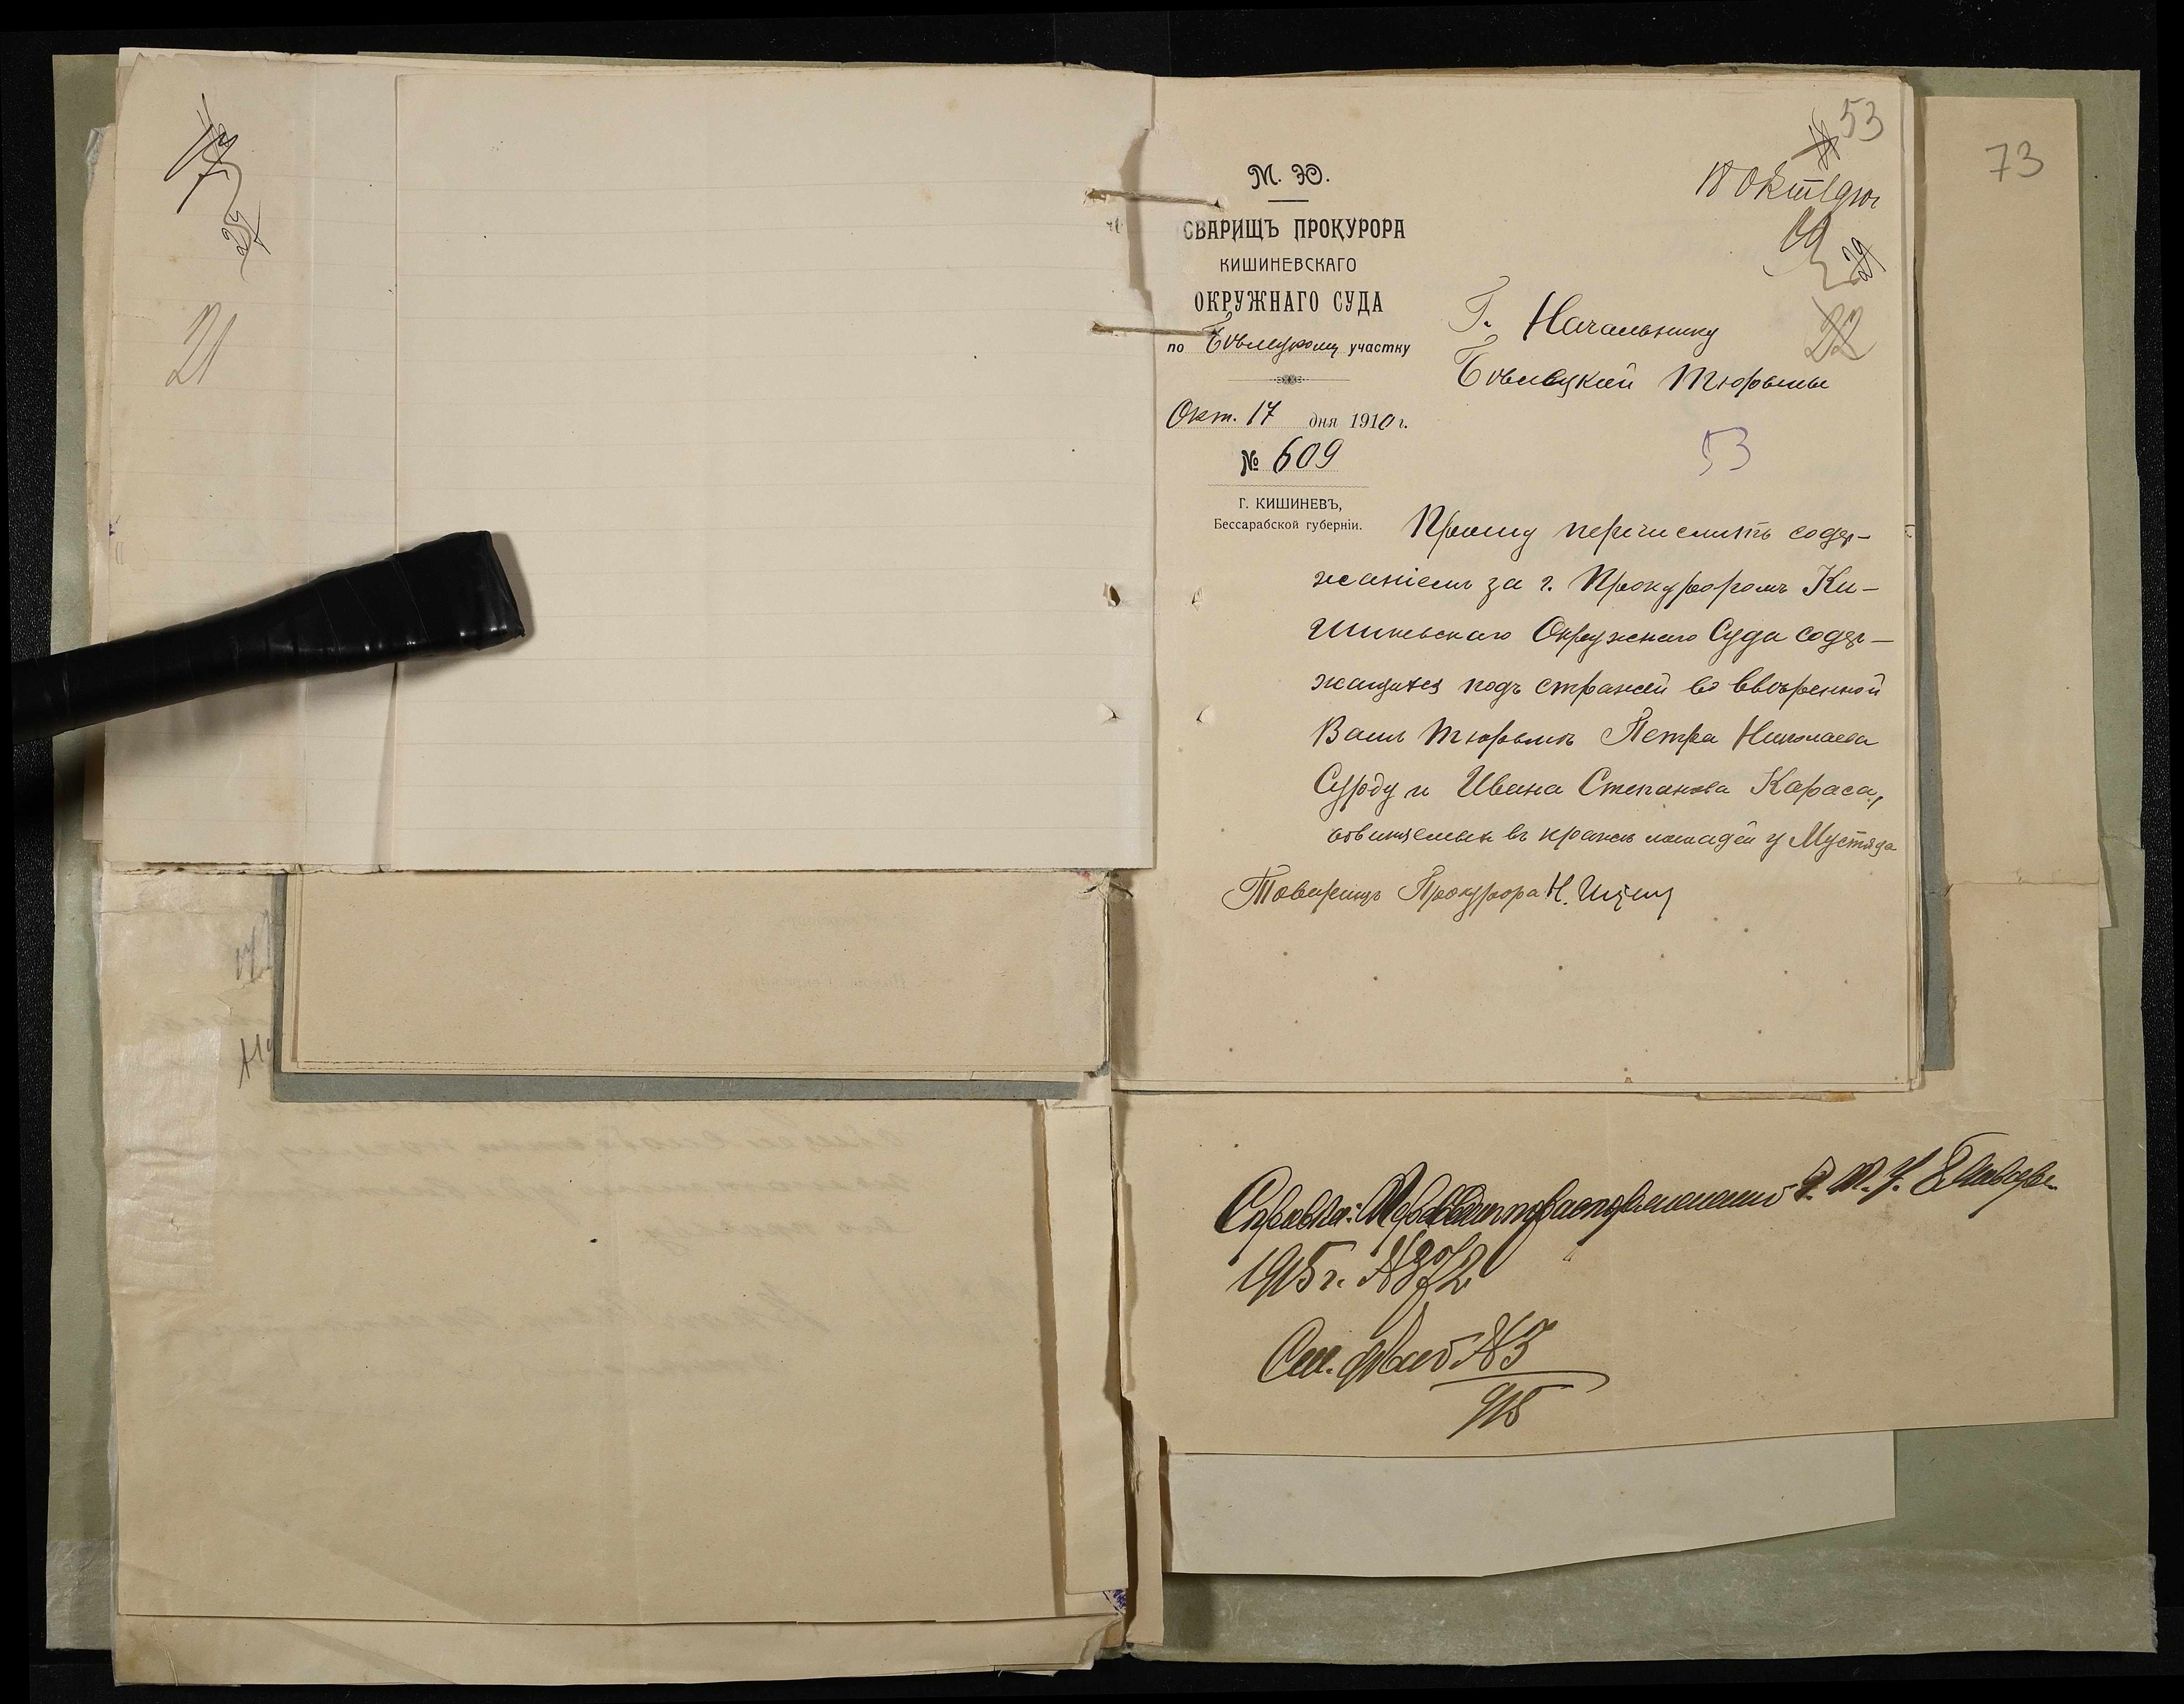 21
М. Ю.
ОВАРИЩЪ ПРОКУРОРА
КИШИНЕВСКАГО
ОКРУЖНАГО СУДА
по Бѣлецкому участку
Окт. 17 дня 1910 г.
№ 609
Г. КИШИНЕВЪ,
Бессарабской губерніи.
53
18 Окт 1910 г
29
22
Г. Начальнику
Бѣлецкой Тюрьмы
53
Прошу перечислить содер-
жаніемъ за г. Прокуроромъ Ки-
шиневскаго Окружнаго Суда содер-
жащихся подъ стражей во ввѣренной
Вамъ тюрьмѣ Петра Николаева
Сурду и Ивана Степанова Караса,
обвиняемых въ кражѣ лошадей у Мустяца
Товарищъ Прокурора Н.
73
Справка:
1915 г. №
См. №3
915